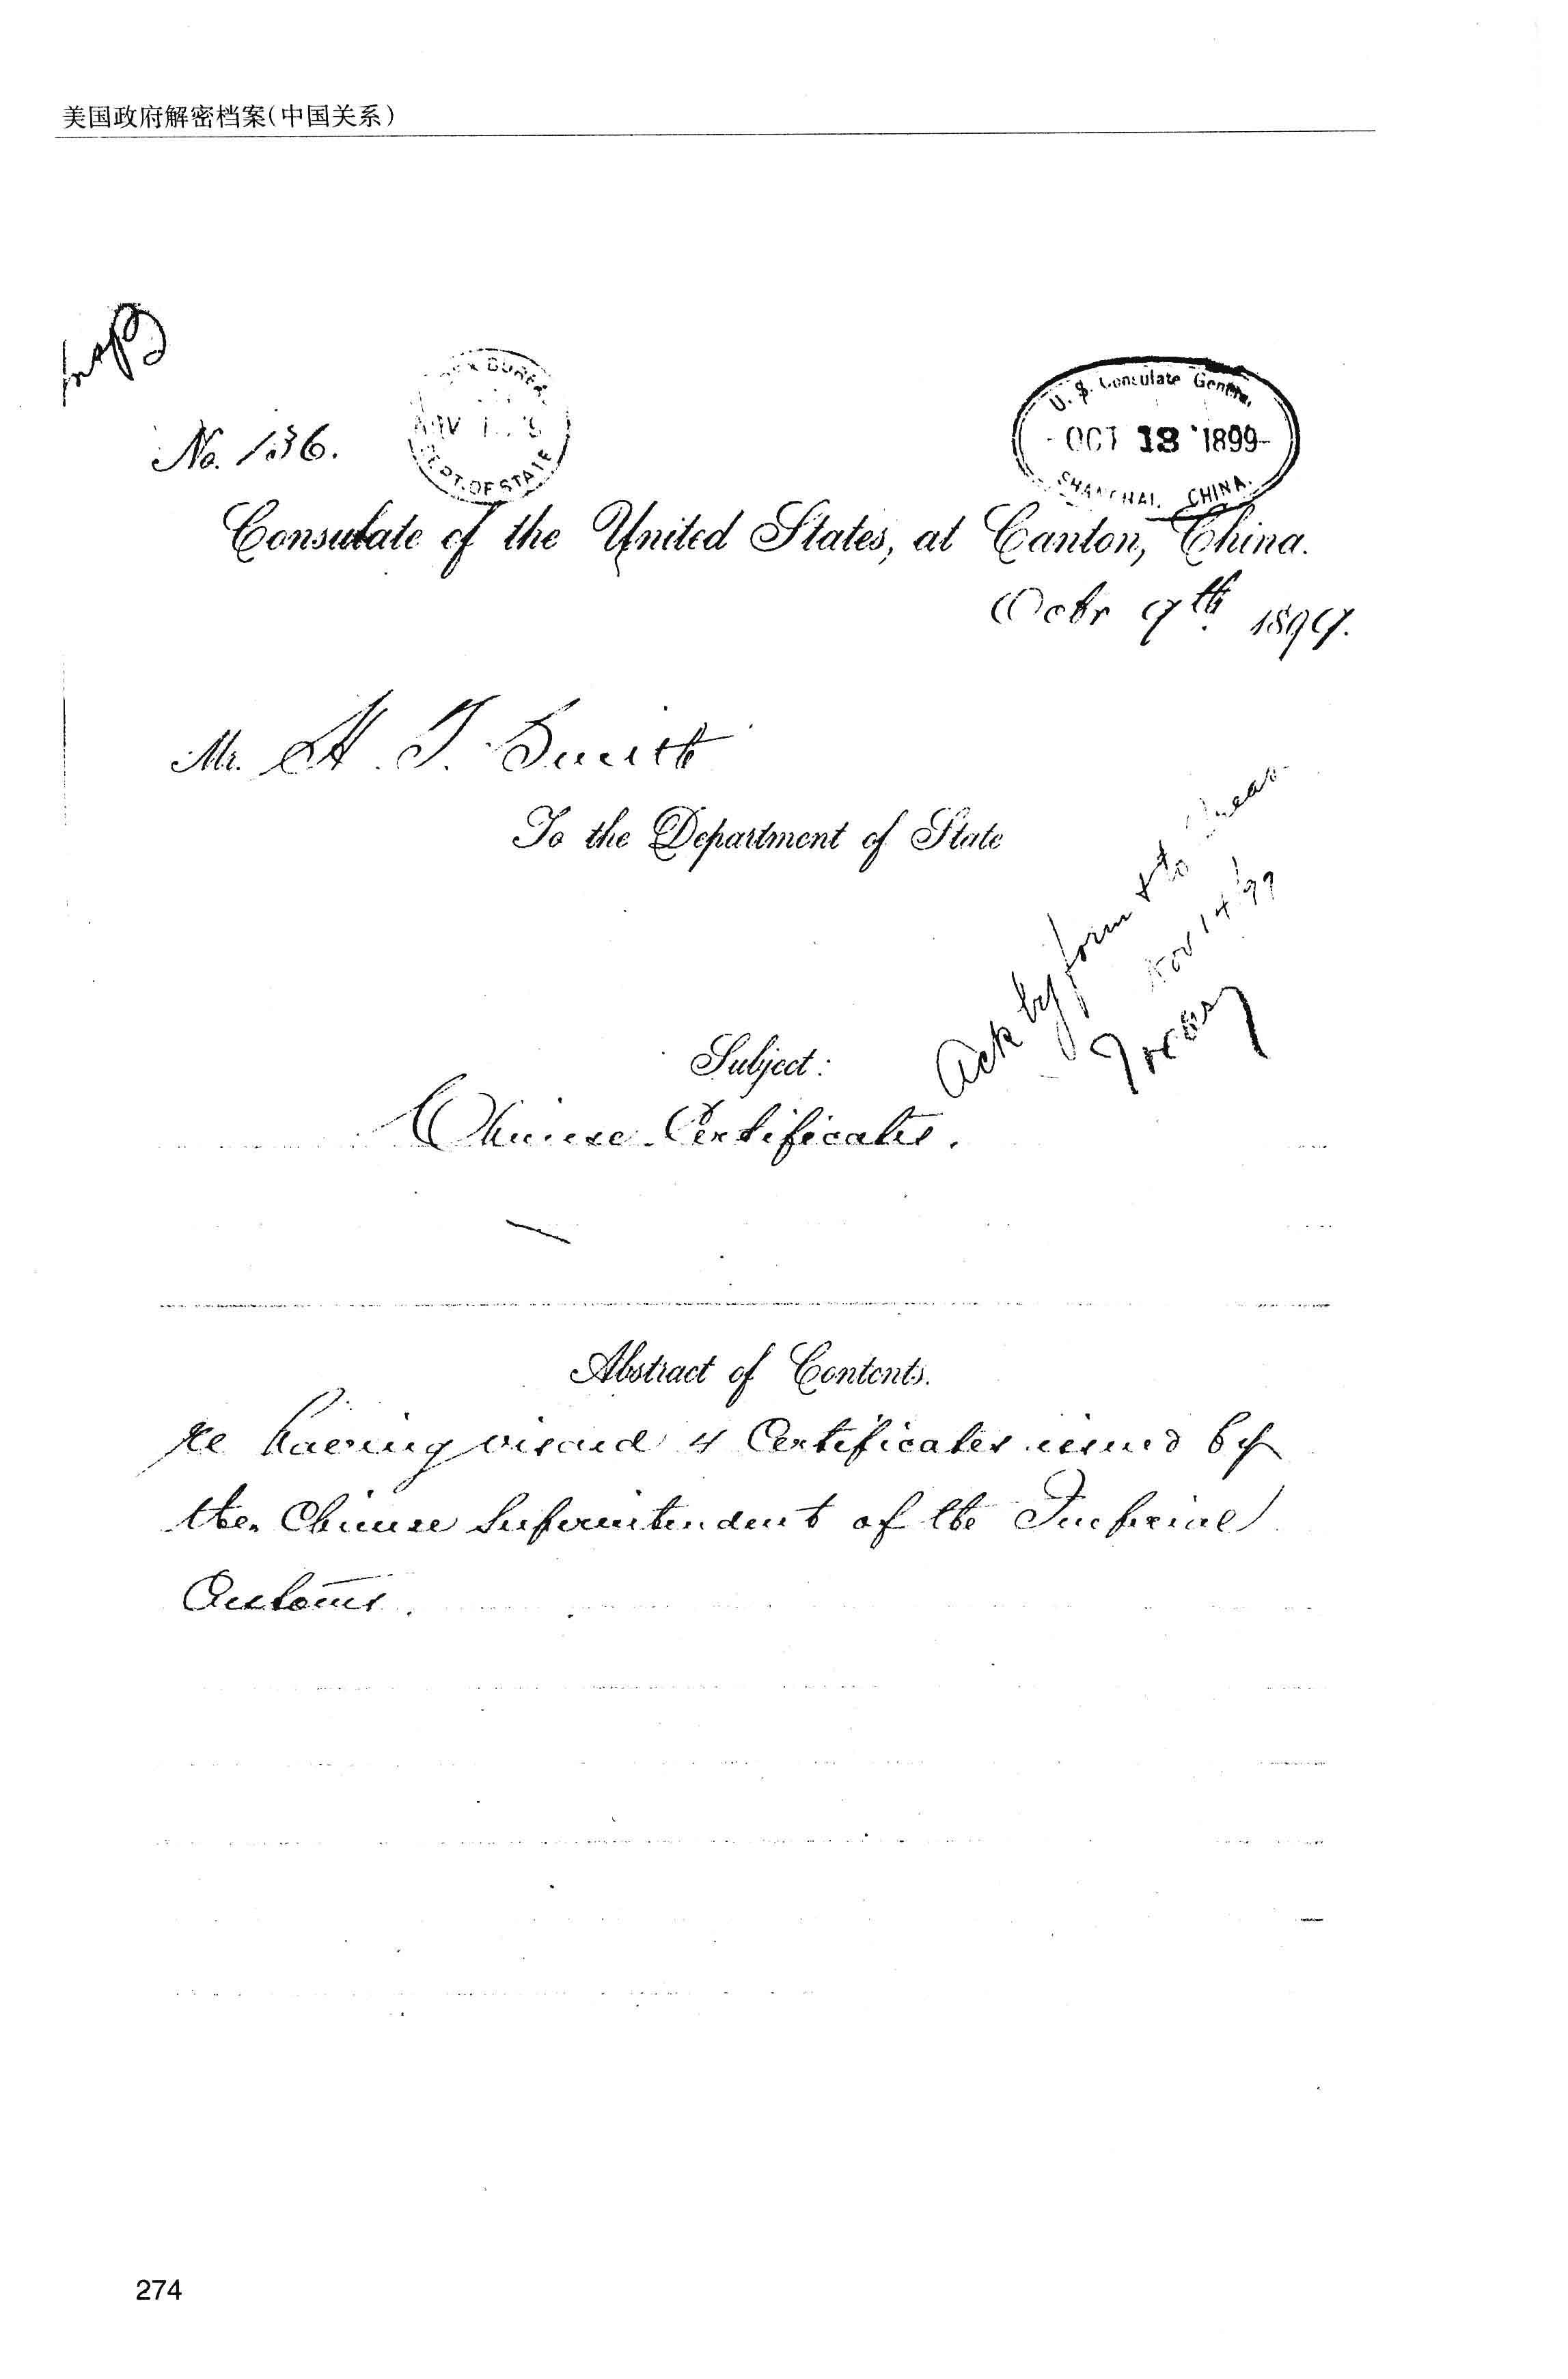 美国政府解密档案(中国关系)
No. 136.
DEPT. OF STATE
U. S. Consulate General
OCT 13 1899
SHANGHAI, CHINA.
Consulate of the United States, at Canton, China.
Octbr 9th 1899.
Mr. H. F. Smith
To the Department of State
Ack by form & to
Nov 14 '99
Subject:
Chinese Certificates.
Abstract of Contents.
Re having visaed 4 Certificates issued by
the Chinese Superintendent of the Imperial
Customs.
274